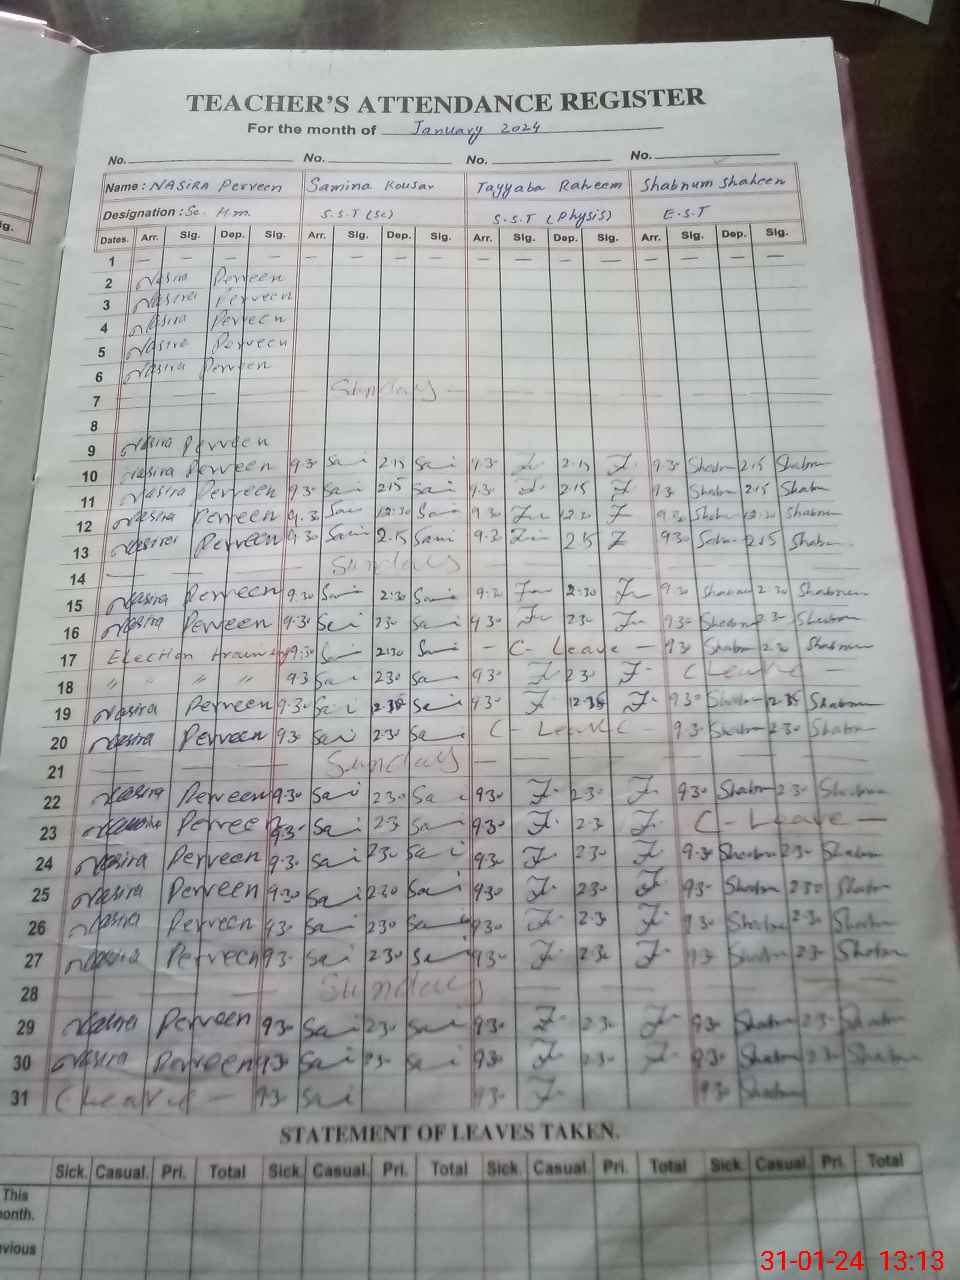 TEACHER'S ATTENDANCE REGISTER
For the month of January 2024
No. No. No. No.
Name: NASIRA Perveen Samina Kousar Tayyaba Raheem Shabnum Shaheen
Designation: Sc. H.m. S.S.T (Sc) S.S.T (Physis) E.S.T
Dates. Arr. Sig. Dep. Sig. Arr. Sig. Dep. Sig. Arr. Sig. Dep. Sig. Arr. Sig. Dep. Sig.
1 — — — — — — — — — — — — — — — —
2 Nasira Perveen
3 Nasira Perveen
4 Nasira Perveen
5 Nasira Perveen
6 Nasira Perveen
7 Sunday
8
9 Nasira Perveen
10 Nasira Perveen 9.30 Sai 2.15 Sai 9.30 2.15 9.30 Shabnm 2.15 Shabnm
11 Nasira Perveen 9.30 Sai 2.15 Sai 9.30 2.15 9.30 Shabnm 2.15 Shabnm
12 Nasira Perveen 9.30 Sai 12:30 Sai 9.30 12.30 9.30 Shabnm 12.30 Shabnum
13 Nasira Perveen 9.30 Sami 2.15 Sami 9.30 2.15 9.30 Shabnm 2.15 Shabnm
14 Sunday
15 Nasira Perveen 9.30 Sami 2:30 Sami 9.30 2:30 9.30 Shabnum 2.30 Shabnum
16 Nasira Perveen 9.30 Sai 2.30 Sai 9.30 2.30 9.30 Shabnm 2.30 Shabnm
17 Election training 9.30 Sai 2:30 Sai — C- Leave — 9.30 Shabnm 2.30 Shabnum
18 " " " " 9.30 Sai 2.30 Sai 9.30 2.30 C Leave
19 Nasira Perveen 9.30 Sai Sai 9.30 9.30 Shabnm Shabnm
20 Nasira Perveen 9.30 Sai 2.30 Sai C- Leave 9.30 Shabnm 2.30 Shabnm
21 Sunday
22 Nasira Perveen 9.30 Sai 2.30 Sai 9.30 2.30 9.30 Shabnm 2.30 Shabnm
23 Perveen 9.30 Sai 2.30 Sai 9.30 2.30 C- Leave —
24 Nasira Perveen 9.30 Sai 2.30 Sai 9.30 2.30 9.30 Shabnm 2.30 Shabnm
25 Nasira Perveen 9.30 Sai 2.30 Sai 9.30 2.30 9.30 Shabnm 2.30 Shabnm
26 Nasira Perveen 9.30 Sai 2.30 Sai 9.30 2.30 9.30 Shabnm 2.30 Shabnm
27 Nasira Perveen 9.30 Sai 2.30 Sai 9.30 2.30 9.30 Shabnm 2.30 Shabnm
28 Sunday
29 Nasira Perveen 9.30 Sai 2.30 Sai 9.30 2.30 9.30 Shabnm 2.30 Shabnm
30 Nasira Perveen 9.30 Sai 2.30 Sai 9.30 2.30 9.30 Shabnm 2.30 Shabnm
31 C Leave — 9.30 Sai 9.30 9.30 Shabnm
STATEMENT OF LEAVES TAKEN.
Sick. Casual. Pri. Total Sick. Casual. Pri. Total Sick. Casual. Pri. Total Sick. Casual. Pri. Total
This
onth.
vious
31-01-24 13:13